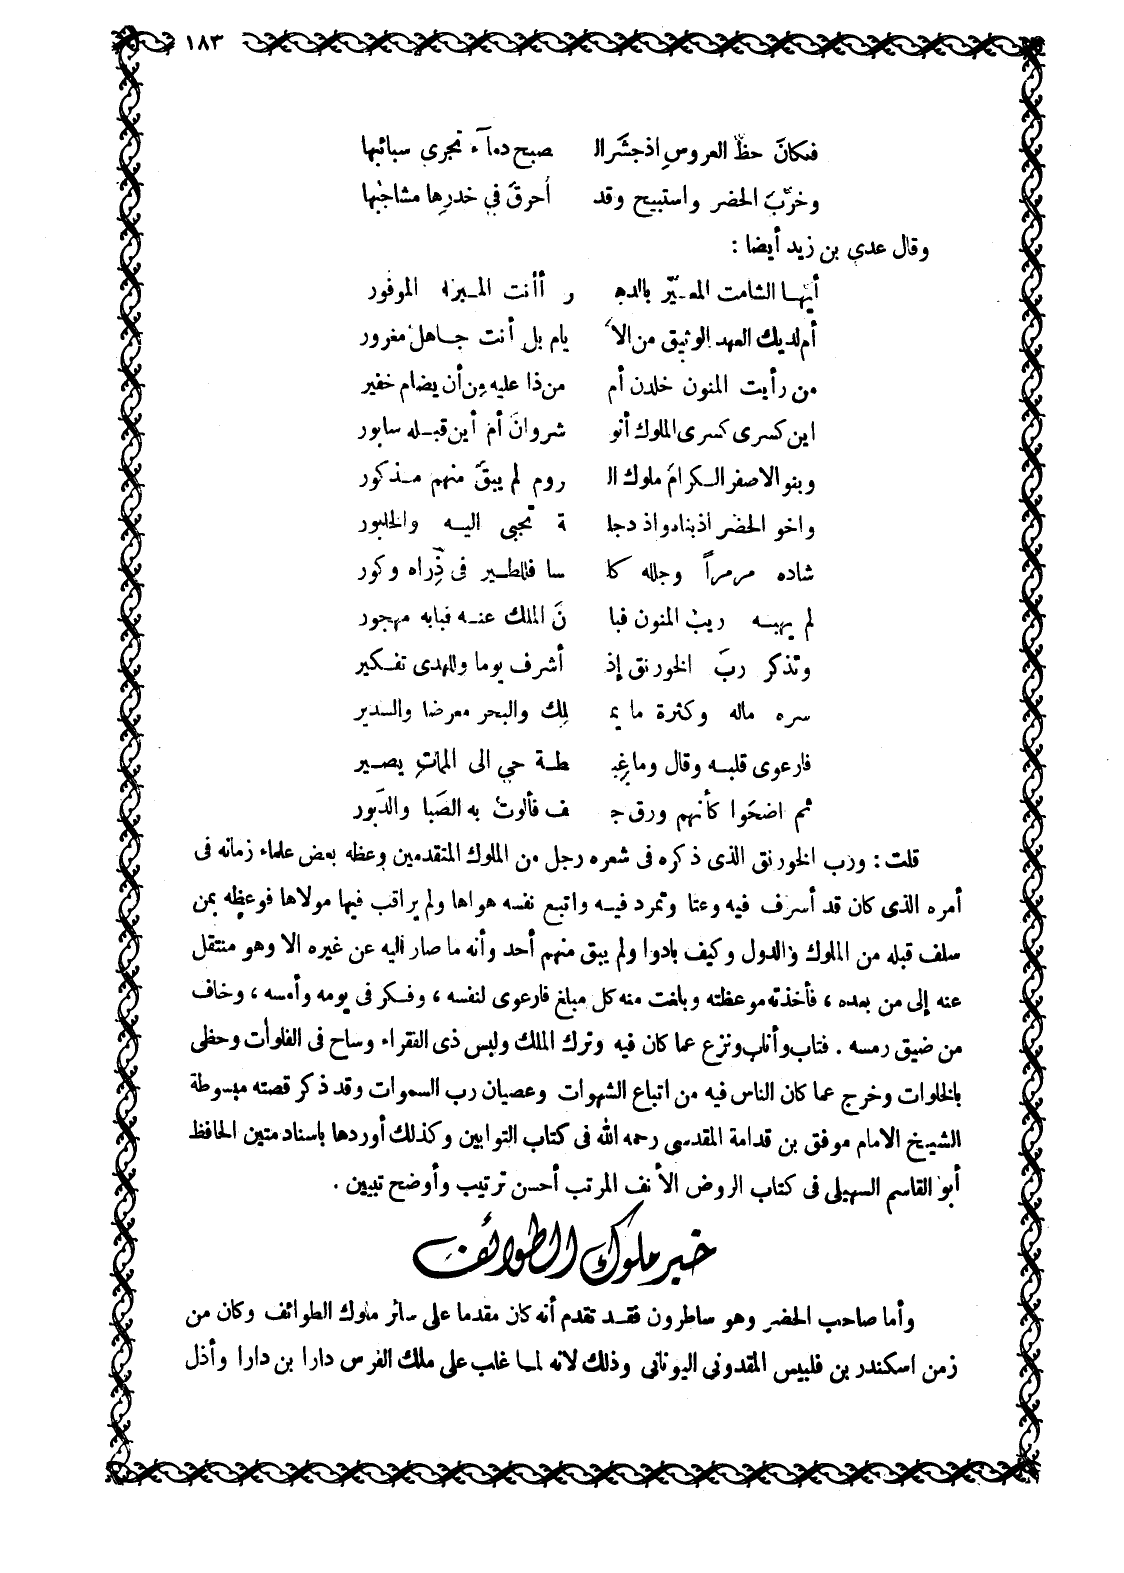 ١٨٣
فكانَ حظّ العروسِ اذ جشَر ال صبح دمآء تجرى سبائبها
وخرّبَ الحضر واستبيح وقد أُحرقَ في خدرِها مشاجبُها
وقال عدي بن زيد أيضا :
أيهـا الشامت المعـيّر بالده ر أأنت المـبرّه الموفور
أم لديك العهد الوثيق من الأ يام بل أنت جـاهلٌ مغرور
من رأيت المنون خلدن أم من ذا عليه من أن يضام خفير
اين كسرى كسرى الملوك أنو شروانَ أم أين قبـله سابور
وبنو الاصفر الـكرامَ ملوك ال روم لم يبقَ منهم مـذكور
واخو الحضر اذ بناه واذ دجل ة تجبى اليـه والخابور
شاده مرمراً وجلله كل سا فللطـير فى ذُراه وكور
لم يهبـه ريبُ المنون فبا نَ الملك عنـه فبابه مهجور
وتذكر ربَ الخورنق إذ أشرف يوما وللهدى تفـكير
سره ماله وكثرة ما يم لِك والبحر معرضا والسدير
فارعوى قلبـه وقال وما غِب طـة حي الى المماتِ يصـير
ثم اضحَوا كأنهم ورق ج ف فألوتْ به الصَبا والدَبور
قلت : ورب الخورنق الذى ذكره فى شعره رجل من الملوك المتقدمين وعظه بعض علماء زمانه فى
أمره الذى كان قد أسرف فيه وعتا وتمرد فيـه واتبع نفسه هواها ولم يراقب فيها مولاها فوعظه بمن
سلف قبله من الملوك والدول وكيف بادوا ولم يبق منهم أحد وأنه ما صار اليه عن غيره الا وهو منتقل
عنه إلى من بعده ، فأخذته موعظته وبلغت منه كل مبلغ فارعوى لنفسه ، وفـكر فى يومه وأمسه ، وخاف
من ضيق رمسه . فتاب وأناب ونزع عما كان فيه وترك الملك ولبس ذى الفقراء وساح فى الفلوات وحظى
بالخلوات وخرج عما كان الناس فيه من اتباع الشهوات وعصيان رب السموات وقد ذكر قصته مبسوطة
الشيخ الامام موفق بن قدامة المقدسى رحمه الله فى كتاب التوابين وكذلك أوردها باسناد متين الحافظ
أبو القاسم السهيلى فى كتاب الروض الأنف المرتب أحسن ترتيب وأوضح تبيين .
خبر ملوك الطوائف
وأما صاحب الحضر وهو ساطرون فقـد تقدم أنه كان مقدما على سائر ملوك الطوائف وكان من
زمن اسكندر بن فلبيس المقدونى اليونانى وذلك لانه لمـا غلب على ملك الفرس دارا بن دارا وأذل